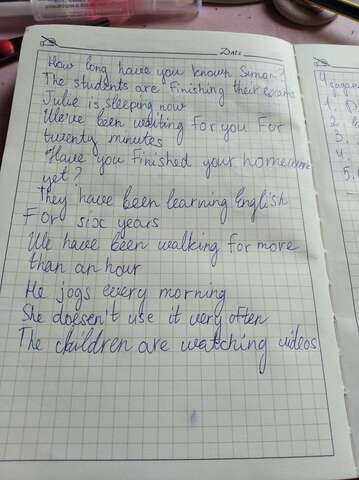 DATE
How long have you known Simon?
The students are finishing their exams
Julie is sleeping now
We've been waiting for you For
twenty minutes
Have you finished your homework
yet?
They have been learning English
For six years
We have been walking for more
than an hour
He jogs every morning
She doesen't use it very often
The children are watching videos
1.
2.
3.
4.
5.